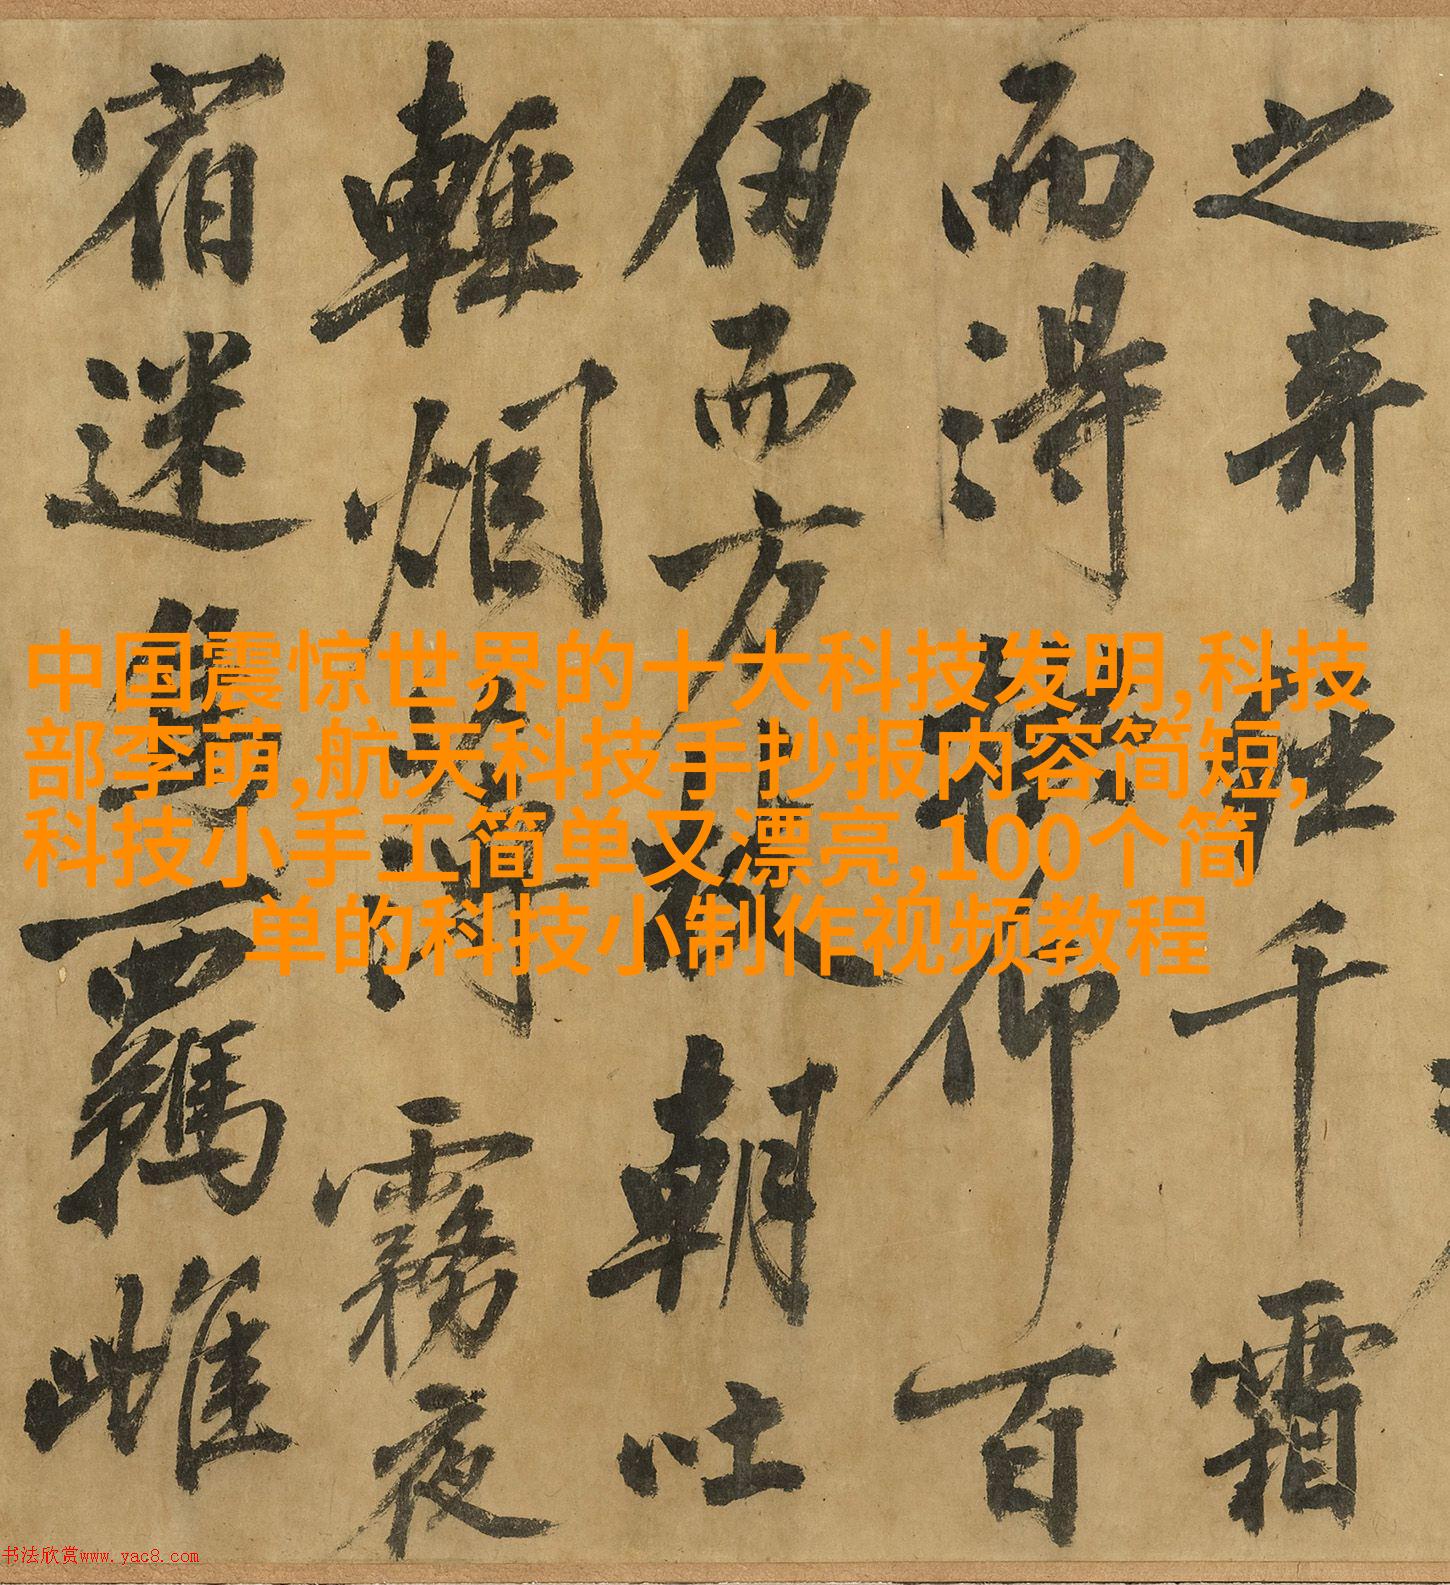 之奇千霜
而得仰百
伊而方朝吐
輕烟霧夜
宿迷羈雌
中国震惊世界的十大科技发明,科技
部李萌,航天科技手抄报内容简短,
科技小手工简单又漂亮,100个简
单的科技小制作视频教程
书法欣赏www.yac8.com